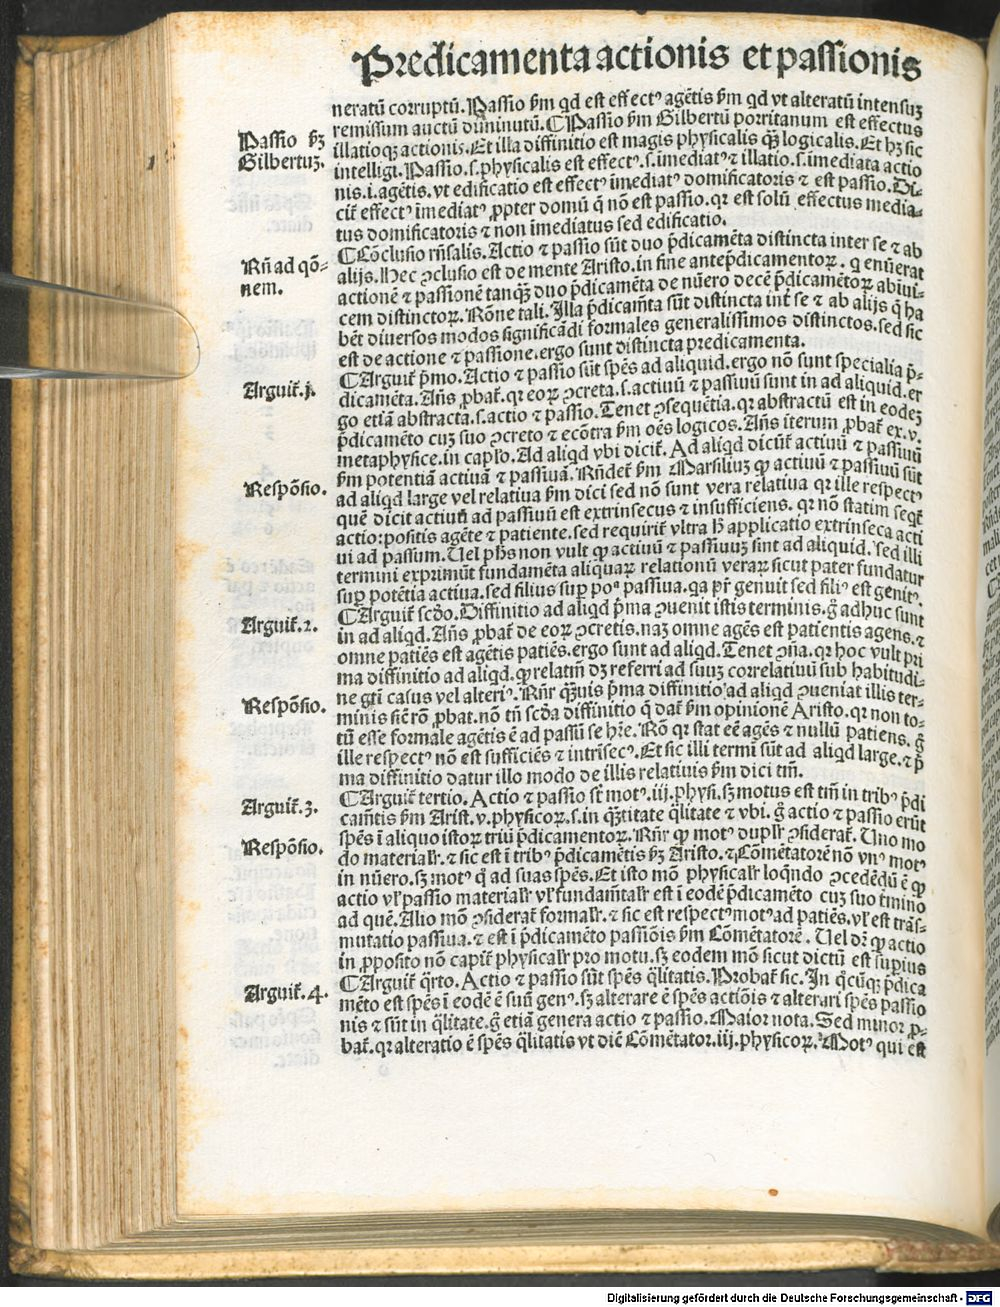 Predicamenta actionis et passionis
neratū corruptū. Passio ẜm qd est effectꝰ agētis ẜm qd vt alteratū intensuꝫ
remissum auctū diminutū. ¶ Passio ẜm Gilbertū porritanum est effectus
illatioqꝫ actionis. Et illa diffinitio est magis physicalis qꝫ̄ logicalis. Et hꝫ sic
intelligi. Passio .s. physicalis est effectꝰ .s. imediatꝰ ⁊ illatio .s. imediata actio
nis .i. agētis. vt edificatio est effectꝰ īmediatꝰ domificatoris ⁊ est passio. Di-
cit̄ effectꝰ īmediatꝰ ꝓpter domū q̄ nō est passio. qꝛ est solū effectus media-
tus domificatoris ⁊ non īmediatus sed edificatio.
Passio ẜꝫ
Gilbertuꝫ.
¶ Cōclusio rn̄salis. Actio ⁊ passio sūt duo p̄dicamēta distincta inter se ⁊ ab
alijs. Hec ꝯclusio est de mente Aristo. in fine antep̄dicamentoꝝ. q̄ enūerat
actionē ⁊ passionē tanqꝫ̄ duo p̄dicamēta de nūero decē p̄dicamētoꝝ abiui-
cem distinctoꝝ. Rōne tali. Illa p̄dicam̄ta sūt distincta int̄ se ⁊ ab alijs q̄ ha
bēt diuersos modos significādi formales generalissimos distinctos. sed sic
est de actione ⁊ passione. ergo sunt distincta predicamenta.
Rn̄ ad qō-
nem.
¶ Arguit̄ pͫmo. Actio ⁊ passio sūt spēs ad aliquid. ergo nō sunt specialia p̄-
dicamēta. Añs ꝓbat̄. qꝛ eoꝝ ꝯcreta .s. actiuū ⁊ passiuū sunt in ad aliquid. er
go etiā abstracta .s. actio ⁊ passio. Tenet ꝯsequētia. qꝛ abstractū est in eodeꝫ
p̄dicamēto cuꝫ suo ꝯcreto ⁊ ecōtra ẜm oēs logicos. Añs iterum ꝓbat̄ ex .v.
metaphysice. in caplo. Ad aliqd vbi dicit̄. Ad aliqd dicūt̄ actiuū ⁊ passiuū
ẜm potentiā actiuā ⁊ passiuā. Rn̄det̄ ẜm Marsiliuꝫ ꝙ actiuū ⁊ passiuū sūt
ad aliqd large vel relatiua ẜm dici sed nō sunt vera relatiua qꝛ ille respectꝰ
quē dicit actiuū ad passiuū est extrinsecus ⁊ insufficiens. qꝛ nō statim seqt̄
actio: positis agēte ⁊ patiente. sed requirit̄ vltra ħ applicatio extrinseca acti
ui ad passum. Uel pħs non vult ꝙ actiuū ⁊ passiuuꝫ sint ad aliquid. sed illi
termini exprimūt fundamēta aliquaꝝ relationū veraꝝ sicut pater fundatur
suꝑ potētia actiua. sed filius suꝑ poᵃ passiua. qa pr̄ genuit sed filiꝰ est genitꝰ.
Arguit̄. j.
Respōsio.
¶ Arguit̄ scd̄o. Diffinitio ad aliqd p̄ma ꝯuenit istis terminis. g̊ adhuc sunt
in ad aliqd. Añs ꝓbat̄ de eoꝝ ꝯcretis. naꝫ omne agēs est patientis agens. ⁊
omne patiēs est agētis patiēs. ergo sunt ad aliqd. Tenet ꝯn̄a. qꝛ hoc vult pri
ma diffinitio ad aliqd. ꝙ relatm̄ dꝫ referri ad suuꝫ correlatiuū sub habitudi-
ne gt̄i casus vel alteriꝰ. Rn̄r qꝫ̄uis p̄ma diffinitio ad aliqd ꝯueniat illis ter-
minis sic̄ rō ꝓbat. nō tn̄ scd̄a diffinitio q̄ dat̄ ẜm opinionē Aristo. qꝛ non to-
tū esse formale agētis ē ad passū se hr̄e. Rō qꝛ stat eē agēs ⁊ nullū patiens. g̊
ille respectꝰ nō est sufficiēs ⁊ intrīsecꝰ. Et sic illi termī sūt ad aliqd large. ⁊ p̄
ma diffinitio datur illo modo de illis relatiuis ẜm dici tm̄.
Arguit̄. 2.
Respōsio.
¶ Arguit̄ tertio. Actio ⁊ passio sūt motꝰ .iij. physi. sꝫ motus est tm̄ in tribꝰ p̄di
cam̄tis ẜm Arist. v. physicoꝝ .s. in qꝫ̄titate q̄litate ⁊ vbi. g̊ actio ⁊ passio erūt
spēs ī aliquo istoꝝ triū p̄dicamentoꝝ. Rn̄r ꝙ motꝰ duplr̄ ꝯsiderat̄. Uno mo
do materialr̄. ⁊ sic est ī tribꝰ p̄dicamētis ẜꝫ Aristo. ⁊ Cōmētatorē nō vnꝰ motꝰ
in nūero. sꝫ motꝰ q̄ ad suas spēs. Et isto mō physicalr̄ loqn̄do ꝯcedēdū ē ꝙ
actio vl̄ passio materialr̄ vl̄ fundam̄talr̄ est ī eodē p̄dicamēto cuꝫ suo tmino
ad quē. Alio mō ꝯsiderat̄ formalr̄. ⁊ sic est respectꝰ motꝰ ad patiēs. vl̄ est trās-
mutatio passiua. ⁊ est ī p̄dicamēto passiōis ẜm Cōmētatorē. Uel dr̄ ꝙ actio
in ꝓposito nō capit̄ physicalr̄ pro motu. sꝫ eodem mō sicut dictū est suꝑius
Arguit̄. 3.
Respōsio.
¶ Arguit̄ q̄rto. Actio ⁊ passio sūt spēs q̄litatis. Probat̄ sic. In q̄cūqꝫ p̄dica
mēto est spēs ī eodē ē suū genꝰ. sꝫ alterare ē spēs actiōis ⁊ alterari spēs passio
nis ⁊ sūt in q̄litate. g̊ etiā genera actio ⁊ passio. Maior nota. Sed minor ꝓ-
bat̄. qꝛ alteratio ē spēs q̄litatis vt dic̄ Cōmētator .iij. physicoꝝ. Motꝰ qui est
Arguit̄. 4.
Digitalisierung gefördert durch die Deutsche Forschungsgemeinschaft - DFG